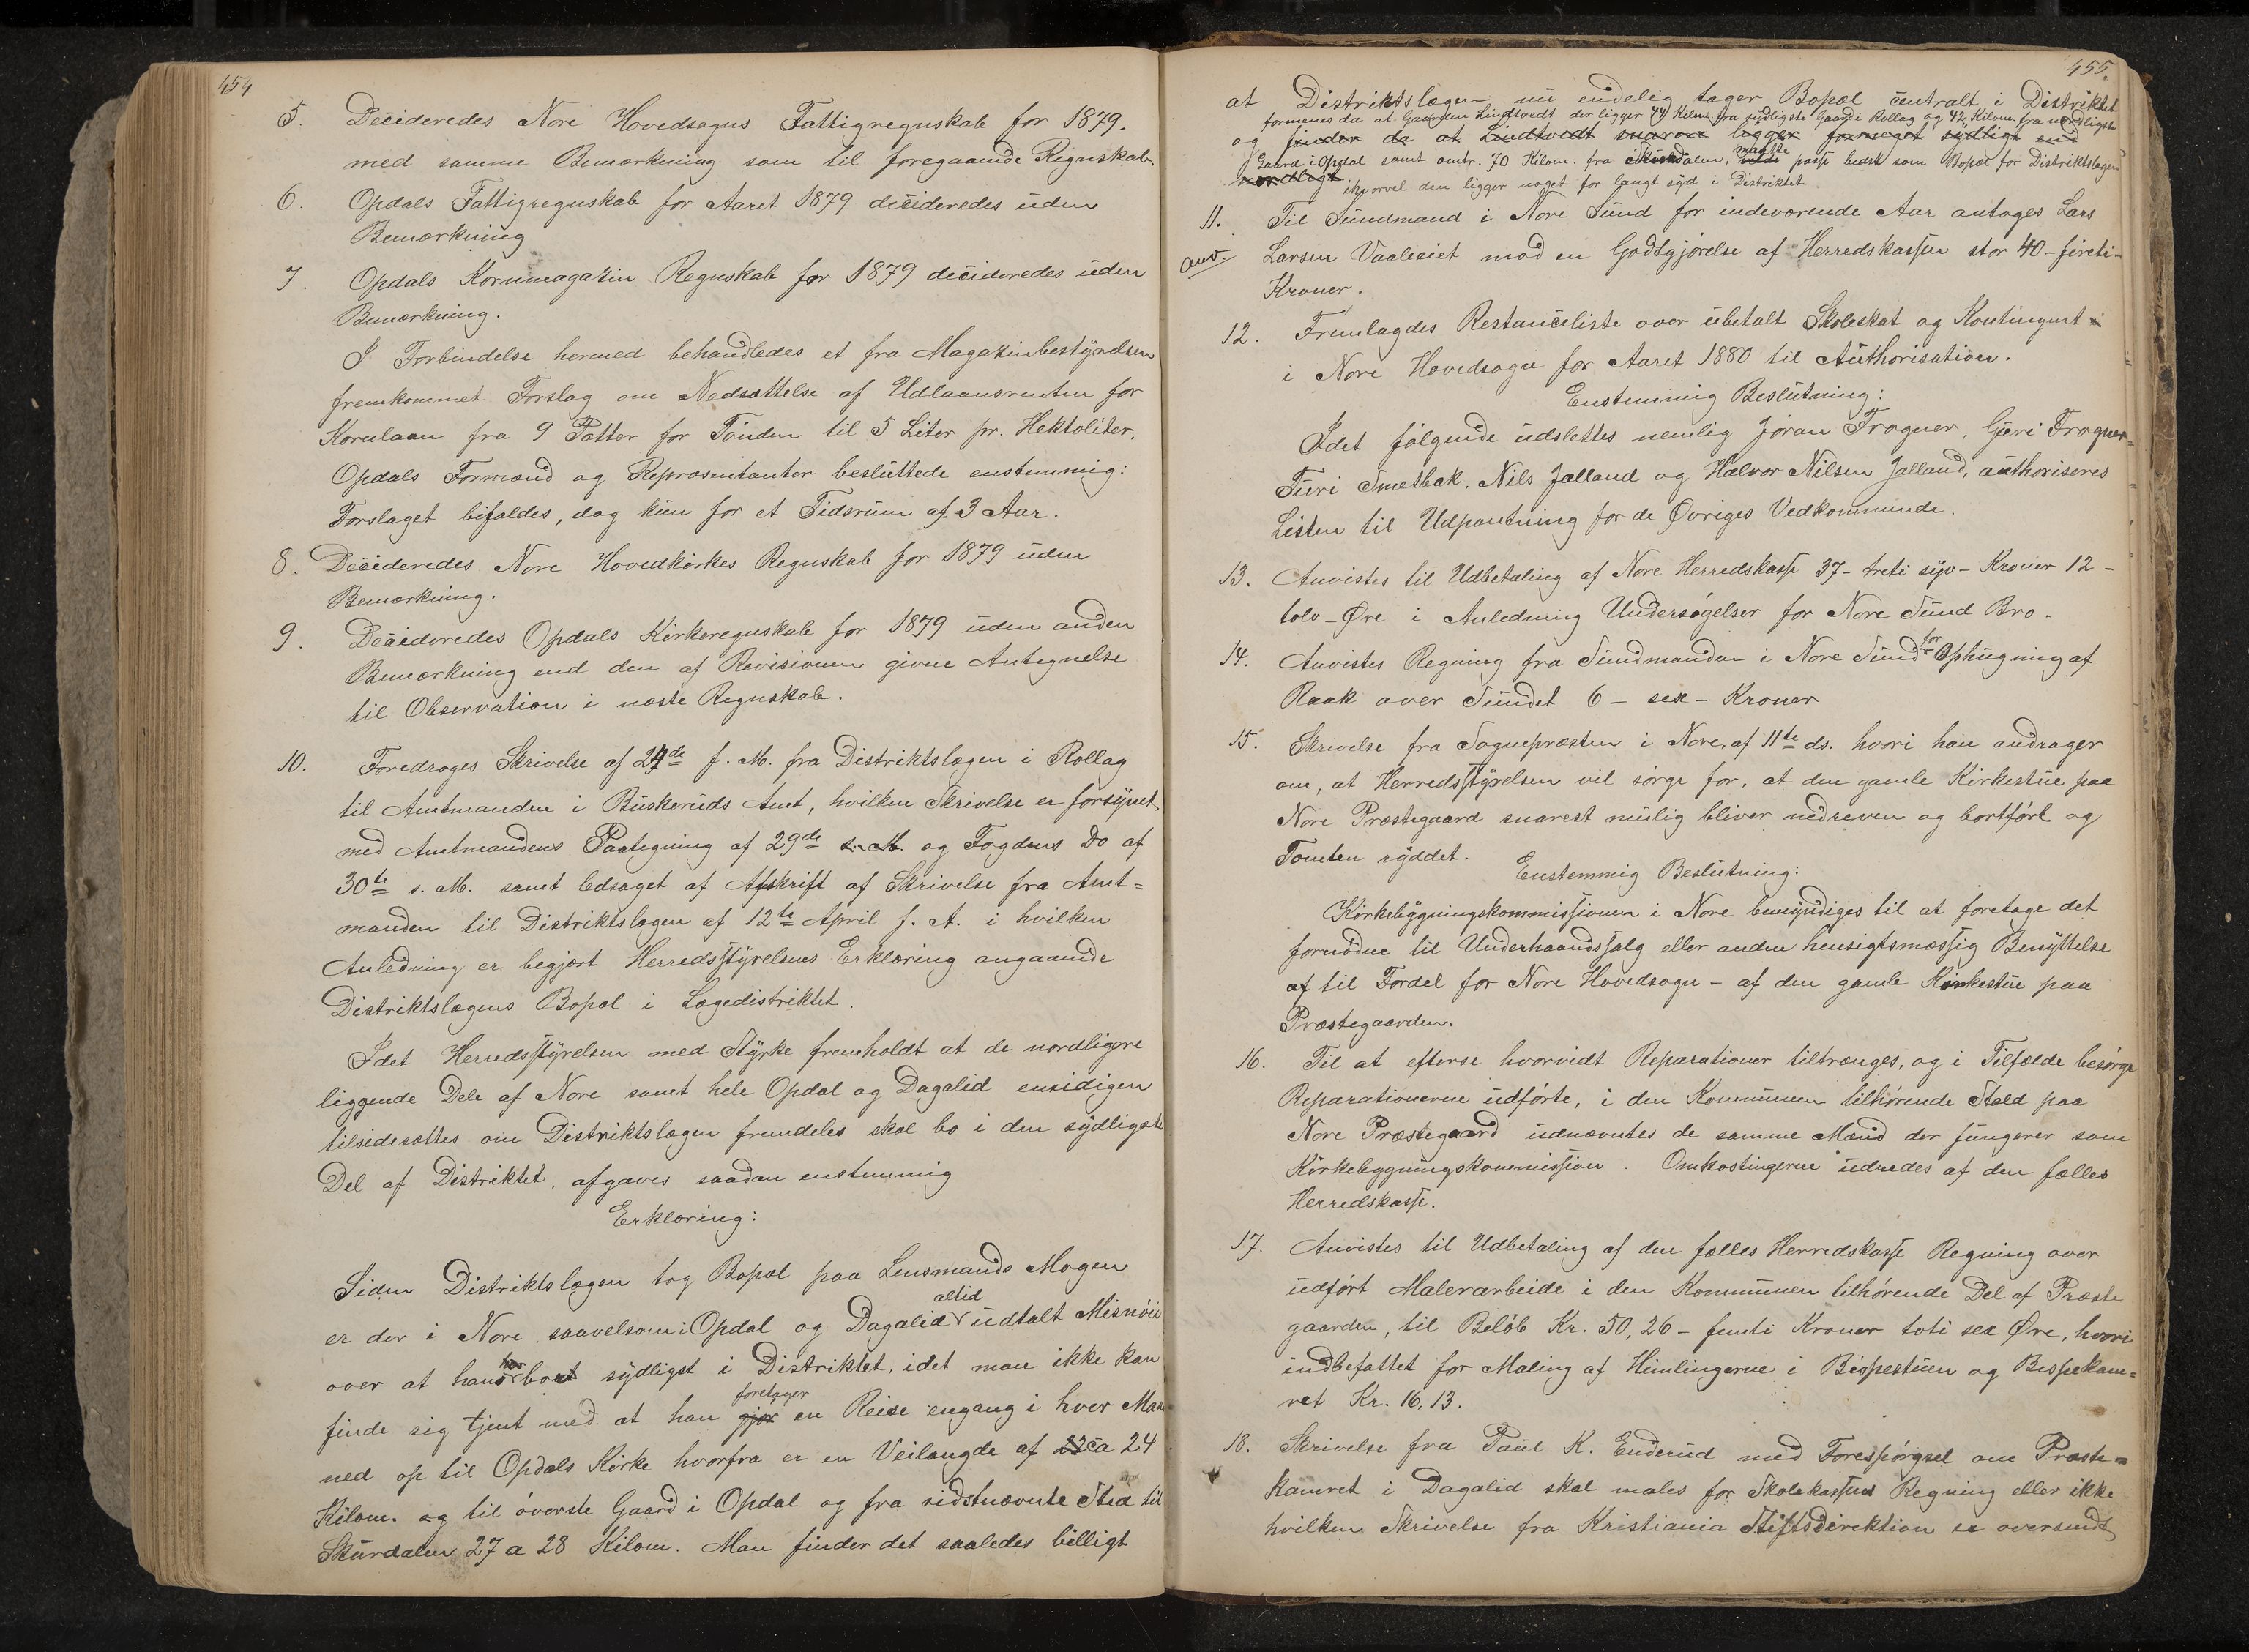 454
5. Decideredes Nore Hovedsogns Fattigregnskab for 1879.
med samme Bemærkning som til foregaaende Regnskab.
6. Opdals Fattigregnskab for Aaret 1879 decideredes uden
Bemærkning
7. Opdals Kornmagazin Regnskab for 1879 decideredes uden
Bemærkning.
I Forbindelse hermed behandledes et fra Magazinbestyrelsen
fremkommet Forslag om Nedsættelse af Udlaansrenten for
Kornlaan fra 9 Potter for Tønden til 5 Liter pr. Hektoliter.
Opdals Formænd og Repræsentanter besluttede enstemmig:
Forslaget bifaldes, dog kun for et Tidsrum af 3 Aar.
8. Decideredes Nore Hovedkirkes Regnskab for 1879 uden
Bemærkning.
9. Decideredes Opdals Kirkeregnskab for 1879 uden anden
Bemærkning end den af Revisionen givne Antegnelse
til Observation i næste Regnskab.
10. Foredroges Skrivelse af 24de f. M. fra Distriktslægen i Rollag
til Amtmanden i Buskeruds Amt, hvilken Skrivelse er forsynet
med Amtmandens Paategning af 29de s. M. og Fogdens Do af
30te s. M. samt ledsaget af Afskrift af Skrivelse fra Amt=
manden til Distriktslægen af 12te April f. A. i hvilken
Anledning er begjært Herredsstyrelsens Erklæring angaaende
Distriktslægens Bopæl i Lægedistriktet.
Idet Herredsstyrelsen med Styrke fremholdt at de nordligere
liggende Dele af Nore samt hele Opdal og Dagalid ensidigen
tilsidesættes om Distriktslægen fremdeles skal bo i den sydligste
Del af Distriktet, afgaves saadan enstemmig
Erklæring:
Siden Distriktslægen tog Bopæl paa Lensmands Mogen
er der i Nore saavelsom i Opdal og Dagalid altid udtalt Misnøie
over at han har boet sydligst i Distriktet, idet man ikke kan
finde sig tjent med at han gjør foretager en Reise engang i hver Maa
ned op til Opdals Kirke hvorfra er en Veilængde af ca 24
Kilom. og til øverste Gaard i Opdal og fra sidstnævnte Sted til
Skurdalen 27 a 28 Kilom. Man finder det saaledes billigt
455.
at Distriktslægen nu endelig tager Bopæl centralt i Distriktet
formenes da at Gaarden Lindtvedt der ligger 44 Kilom fra sydligste Gaard i Rollag og 42 Kilom. fra nordligste
og finder da at Lindtvedt snarere ligger formeget sydligt end
Gaard i Opdal samt omtr. 70 Kilom. fra Skurdalen, maatte passe bedst som Bopæl for Distriktslægen
nordligt ihvorvel den ligger noget for langt syd i Distriktet
11. Til Sundmand i Nore Sund for indeværende Aar antages Lars
anv. Larsen Vaalieiet mod en Godtgjørelse af Herredskassen stor 40 - firti-
Kroner.
12. Fremlagdes Restanceliste over ubetalt Skoleskat og Kontingent
i Nore Hovedsogn for Aaret 1880 til Authorisation.
Enstemmig Beslutning:
Idet følgende udslettes nemlig Jøran Frogner, Guri Frogner-
Turi Smetbak. Nils Jalland og Halvor Nilsen Jalland, authoriseres
Listen til Udpantning for de Øvriges Vedkommende.
13. Anvistes til Udbetaling af Nore Herredskasse 37 - treti syv - Kroner 12 -
tolv - Øre i Anledning Undersøgelser for Nore Sund Bro.
14. Anvistes Regning fra Sundmanden i Nore Sund for Ophugning af
Raak over Sundet 6 - sex - Kroner
15. Skrivelse fra Sognepræsten i Nore, af 11te ds. hvori han andrager
om, at Herredsstyrelsen vil sørge for, at den gamle Kirkestue paa
Nore Præstegaard snarest mulig bliver nedreven og bortført og
Tomten ryddet.
Enstemmig Beslutning:
Kirkebygningskommissionen i Nore bemyndiges til at foretage det
fornødne til Underhaandssalg eller anden hensigtsmæssig Benyttelse
af til Fordel for Nore Hovedsogn - af den gamle Kirkestue paa
Præstegaarden.
16. Til at efterse hvorvidt Reparationer tiltrænges, og i Tilfælde besørge
Reparationerne udførte, i den Kommunen tilhørende Stald paa
Nore Præstegaard udnævntes de samme Mænd der fungerer som
Kirkebygningskommission. Omkostningerne udredes af den fælles
Herredskasse.
17. Anvistes til Udbetaling af den fælles Herredskasse Regning over
udført Malerarbeide i den Kommunen tilhørende Del af Præste
gaarden, til Beløb Kr. 50,26 - femti Kroner toti sex Øre, hvori
indbefattet for Maling af Himlingerne i Bispestuen og Bispekam=
ret Kr. 16.13.
18. Skrivelse fra Paul K. Enderud med Forespørgsel om Præste=
kamret i Dagalid skal males for Skolekassens Regning eller ikke
hvilken Skrivelse fra Kristiania Stiftsdirektion er oversendt